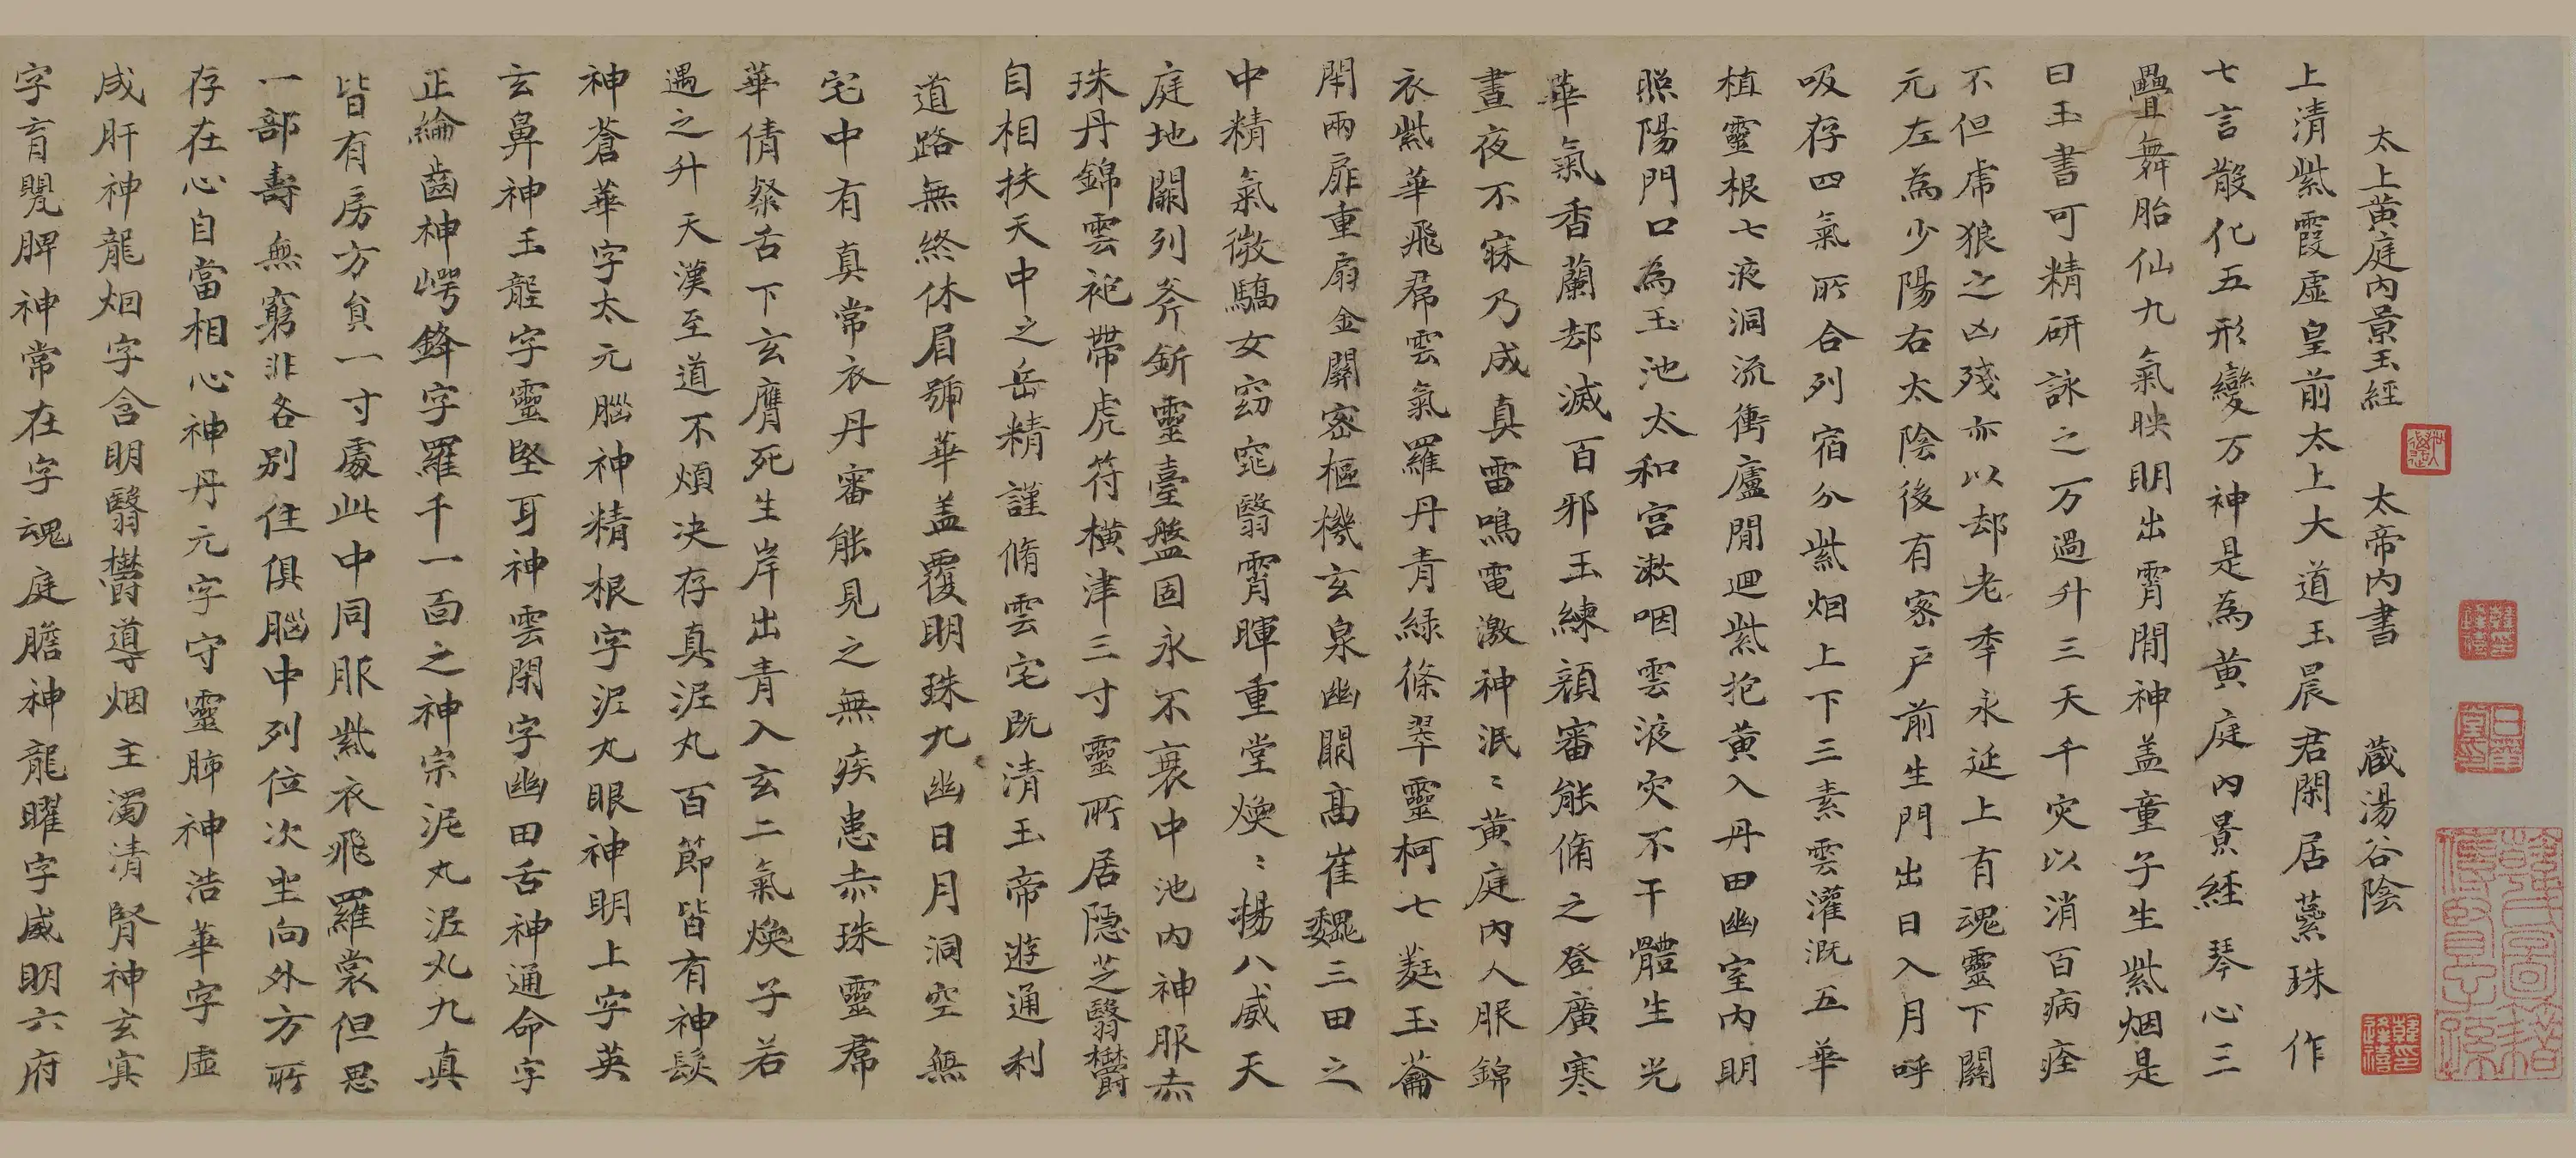 太上黃庭內景玉經 太帝內書 藏湯谷陰
上清紫霞虛皇前太上大道玉晨君閑居蘂珠作
七言散化五形變万神是為黃庭內景經琴心三
疊舞胎仙九氣映明出霄間神盖童子生紫烟是
曰玉書可精研詠之万過升三天千灾以消百病痊
不但虎狼之凶殘亦以却老秊永延上有魂靈下關
元左為少陽右太陰後有密戶前生門出日入月呼
吸存四氣所合列宿分紫烟上下三素雲灌溉五華
植靈根七液洞流衝廬間迴紫抱黃入丹田幽室內明
照陽門口為玉池太和宮漱咽雲液灾不干體生光
華氣香蘭却滅百邪玉練顏審能脩之登廣寒
晝夜不寐乃成真雷鳴電激神泯〻黃庭內人服錦
衣紫華飛帬雲氣羅丹青綠條翠靈柯七蕤玉籥
閇兩扉重扇金關密樞機玄泉幽闕高崔巍三田之
中精氣微驕女窈窕翳霄暉重堂煥〻揚八威天
庭地關列斧斨靈臺盤固永不衰中池內神服赤
珠丹錦雲袍帶虎符橫津三寸靈所居隱芝翳欝
自相扶天中之岳精謹脩雲宅既清玉帝遊通利
道路無終休眉號華盖覆明珠九幽日月洞空無
宅中有真常衣丹審能見之無疾患赤珠靈帬
華倩粲舌下玄膺死生岸出青入玄二氣煥子若
遇之升天漢至道不煩決存真泥丸百節皆有神髮
神蒼華字太元腦神精根字泥丸眼神明上字英
玄鼻神玉壟字靈堅耳神雲閑字幽田舌神通命字
正綸齒神崿鋒字羅千一面之神宗泥丸泥丸九真
皆有房方負一寸處此中同服紫衣飛羅裳但思
一部壽無窮非各別住俱腦中列位次坐向外方所
存在心自當相心神丹元字守靈肺神浩華字虛
成肝神龍烟字含明翳欝導烟主濁清腎神玄冥
字育嬰脾神常在字魂庭膽神龍曜字威明六府